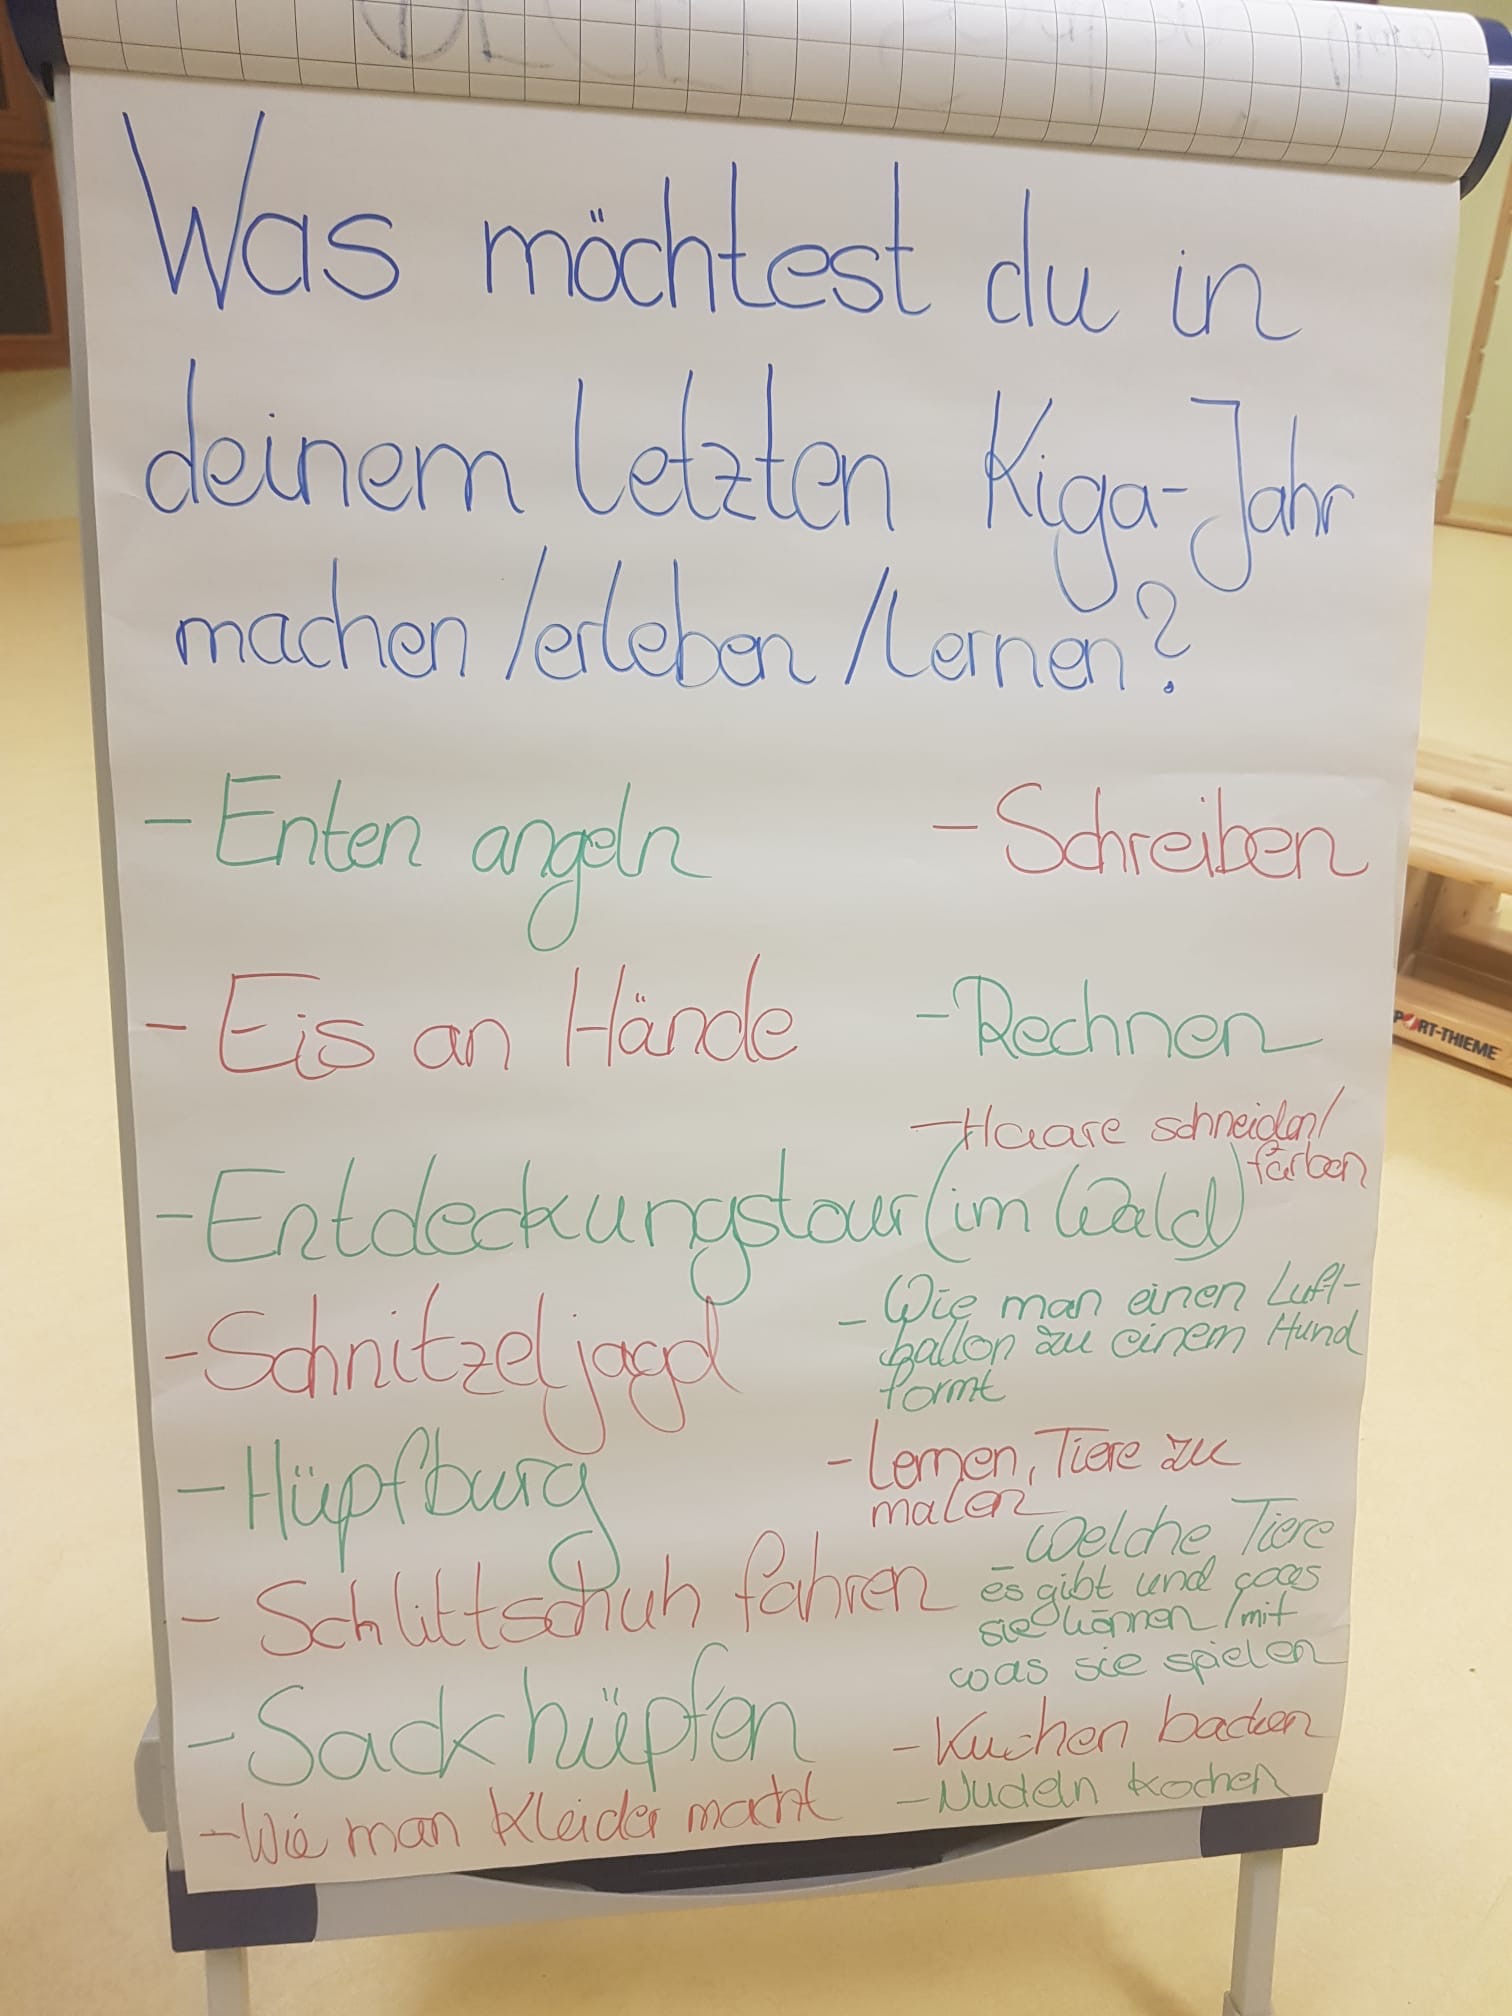 Was möchtest du in
deinem letzten Kiga-Jahr
machen /erleben /lernen?
- Enten angeln
- Eis an Hände
- Entdeckungstour (im Wald)
- Schnitzeljagd
- Hüpfburg
- Schlittschuh fahren
- Sackhüpfen
- Wie man Kleider macht
- Schreiben
- Rechnen
- Haare schneiden/
färben
- Wie man einen Luft-
ballon zu einem Hund
formt
- Lernen, Tiere zu
malen
- Welche Tiere
es gibt und was
sie können /mit
was sie spielen
- Kuchen backen
- Nudeln kochen
PORT-THIEME